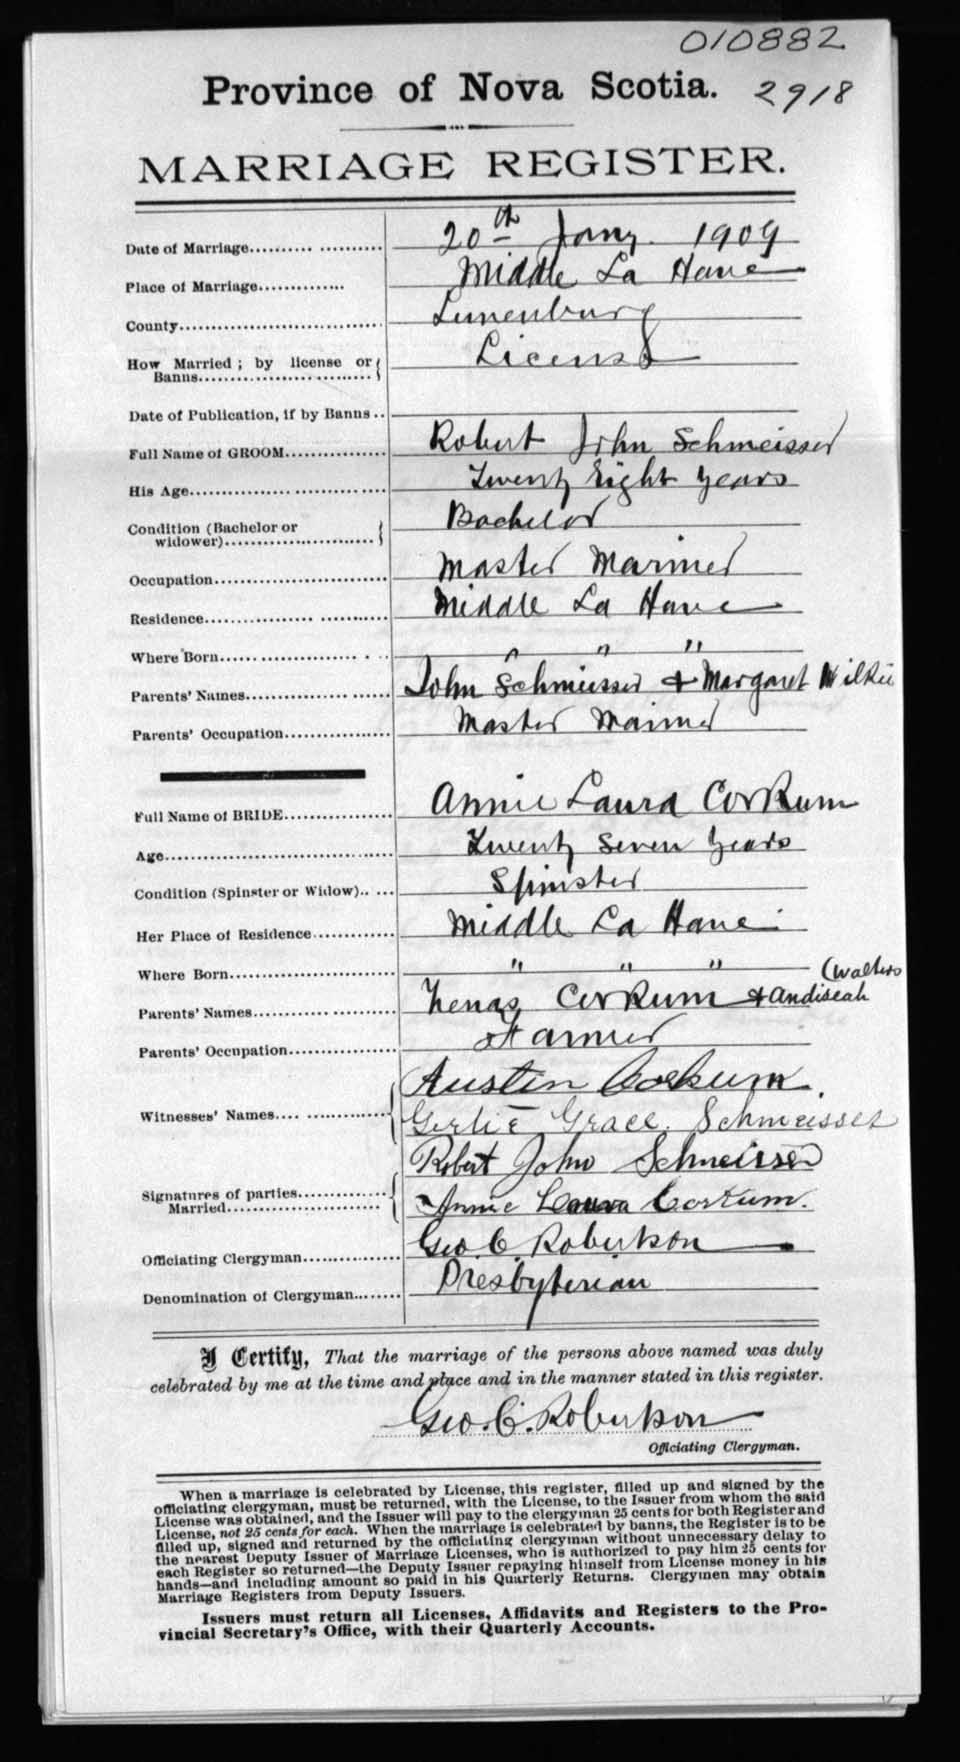 010882
Province of Nova Scotia. 2918
MARRIAGE REGISTER.
Date of Marriage.......... .......... 20th Jany. 1909
Place of Marriage............. Middle La Have
County............................... Lunenburg
How Married ; by license or License
Banns.......................
Date of Publication, if by Banns ..
Full Name of GROOM............... Robert John Schmeisser
His Age............................. Twenty Eight years
Condition (Bachelor or Bachelor
widower).......................
Occupation.......................... Master Mariner
Residence................ .......... Middle La Have
Where Born......................... " " "
Parents' Names.................... John Schmeisser & Margaret Wilkie
Parents' Occupation................ Master Mariner
Full Name of BRIDE................ Annie Laura Corkum
Age.................................. Twenty Seven Years
Condition (Spinster or Widow)..... Spinster
Her Place of Residence............ Middle La Have
Where Born......................... " " "
(Walters
Parents' Names.................... Zenas Corkum & Andiseah
Parents' Occupation............... Farmer
Austin Corkum.
Witnesses' Names.... ............
Gertie Grace. Schmeisser
Robert John Schmeisser
Signatures of parties.............
Married.......................... Annie Laura Corkum.
Officiating Clergyman............. Geo. C. Robertson
Denomination of Clergyman....... Presbyterian
I Certify, That the marriage of the persons above named was duly
celebrated by me at the time and place and in the manner stated in this register.
Geo. C. Robertson
Officiating Clergyman.
When a marriage is celebrated by License, this register, filled up and signed by the
officiating clergyman, must be returned, with the License, to the Issuer from whom the said
License was obtained, and the Issuer will pay to the clergyman 25 cents for both Register and
License, not 25 cents for each. When the marriage is celebrated by banns, the Register is to be
filled up, signed and returned by the officiating clergyman without unnecessary delay to
the nearest Deputy Issuer of Marriage Licenses, who is authorized to pay him 25 cents for
each Register so returned—the Deputy Issuer repaying himself from License money in his
hands—and including amount so paid in his Quarterly Returns. Clergymen may obtain
Marriage Registers from Deputy Issuers.
Issuers must return all Licenses, Affidavits and Registers to the Pro-
vincial Secretary's Office, with their Quarterly Accounts.